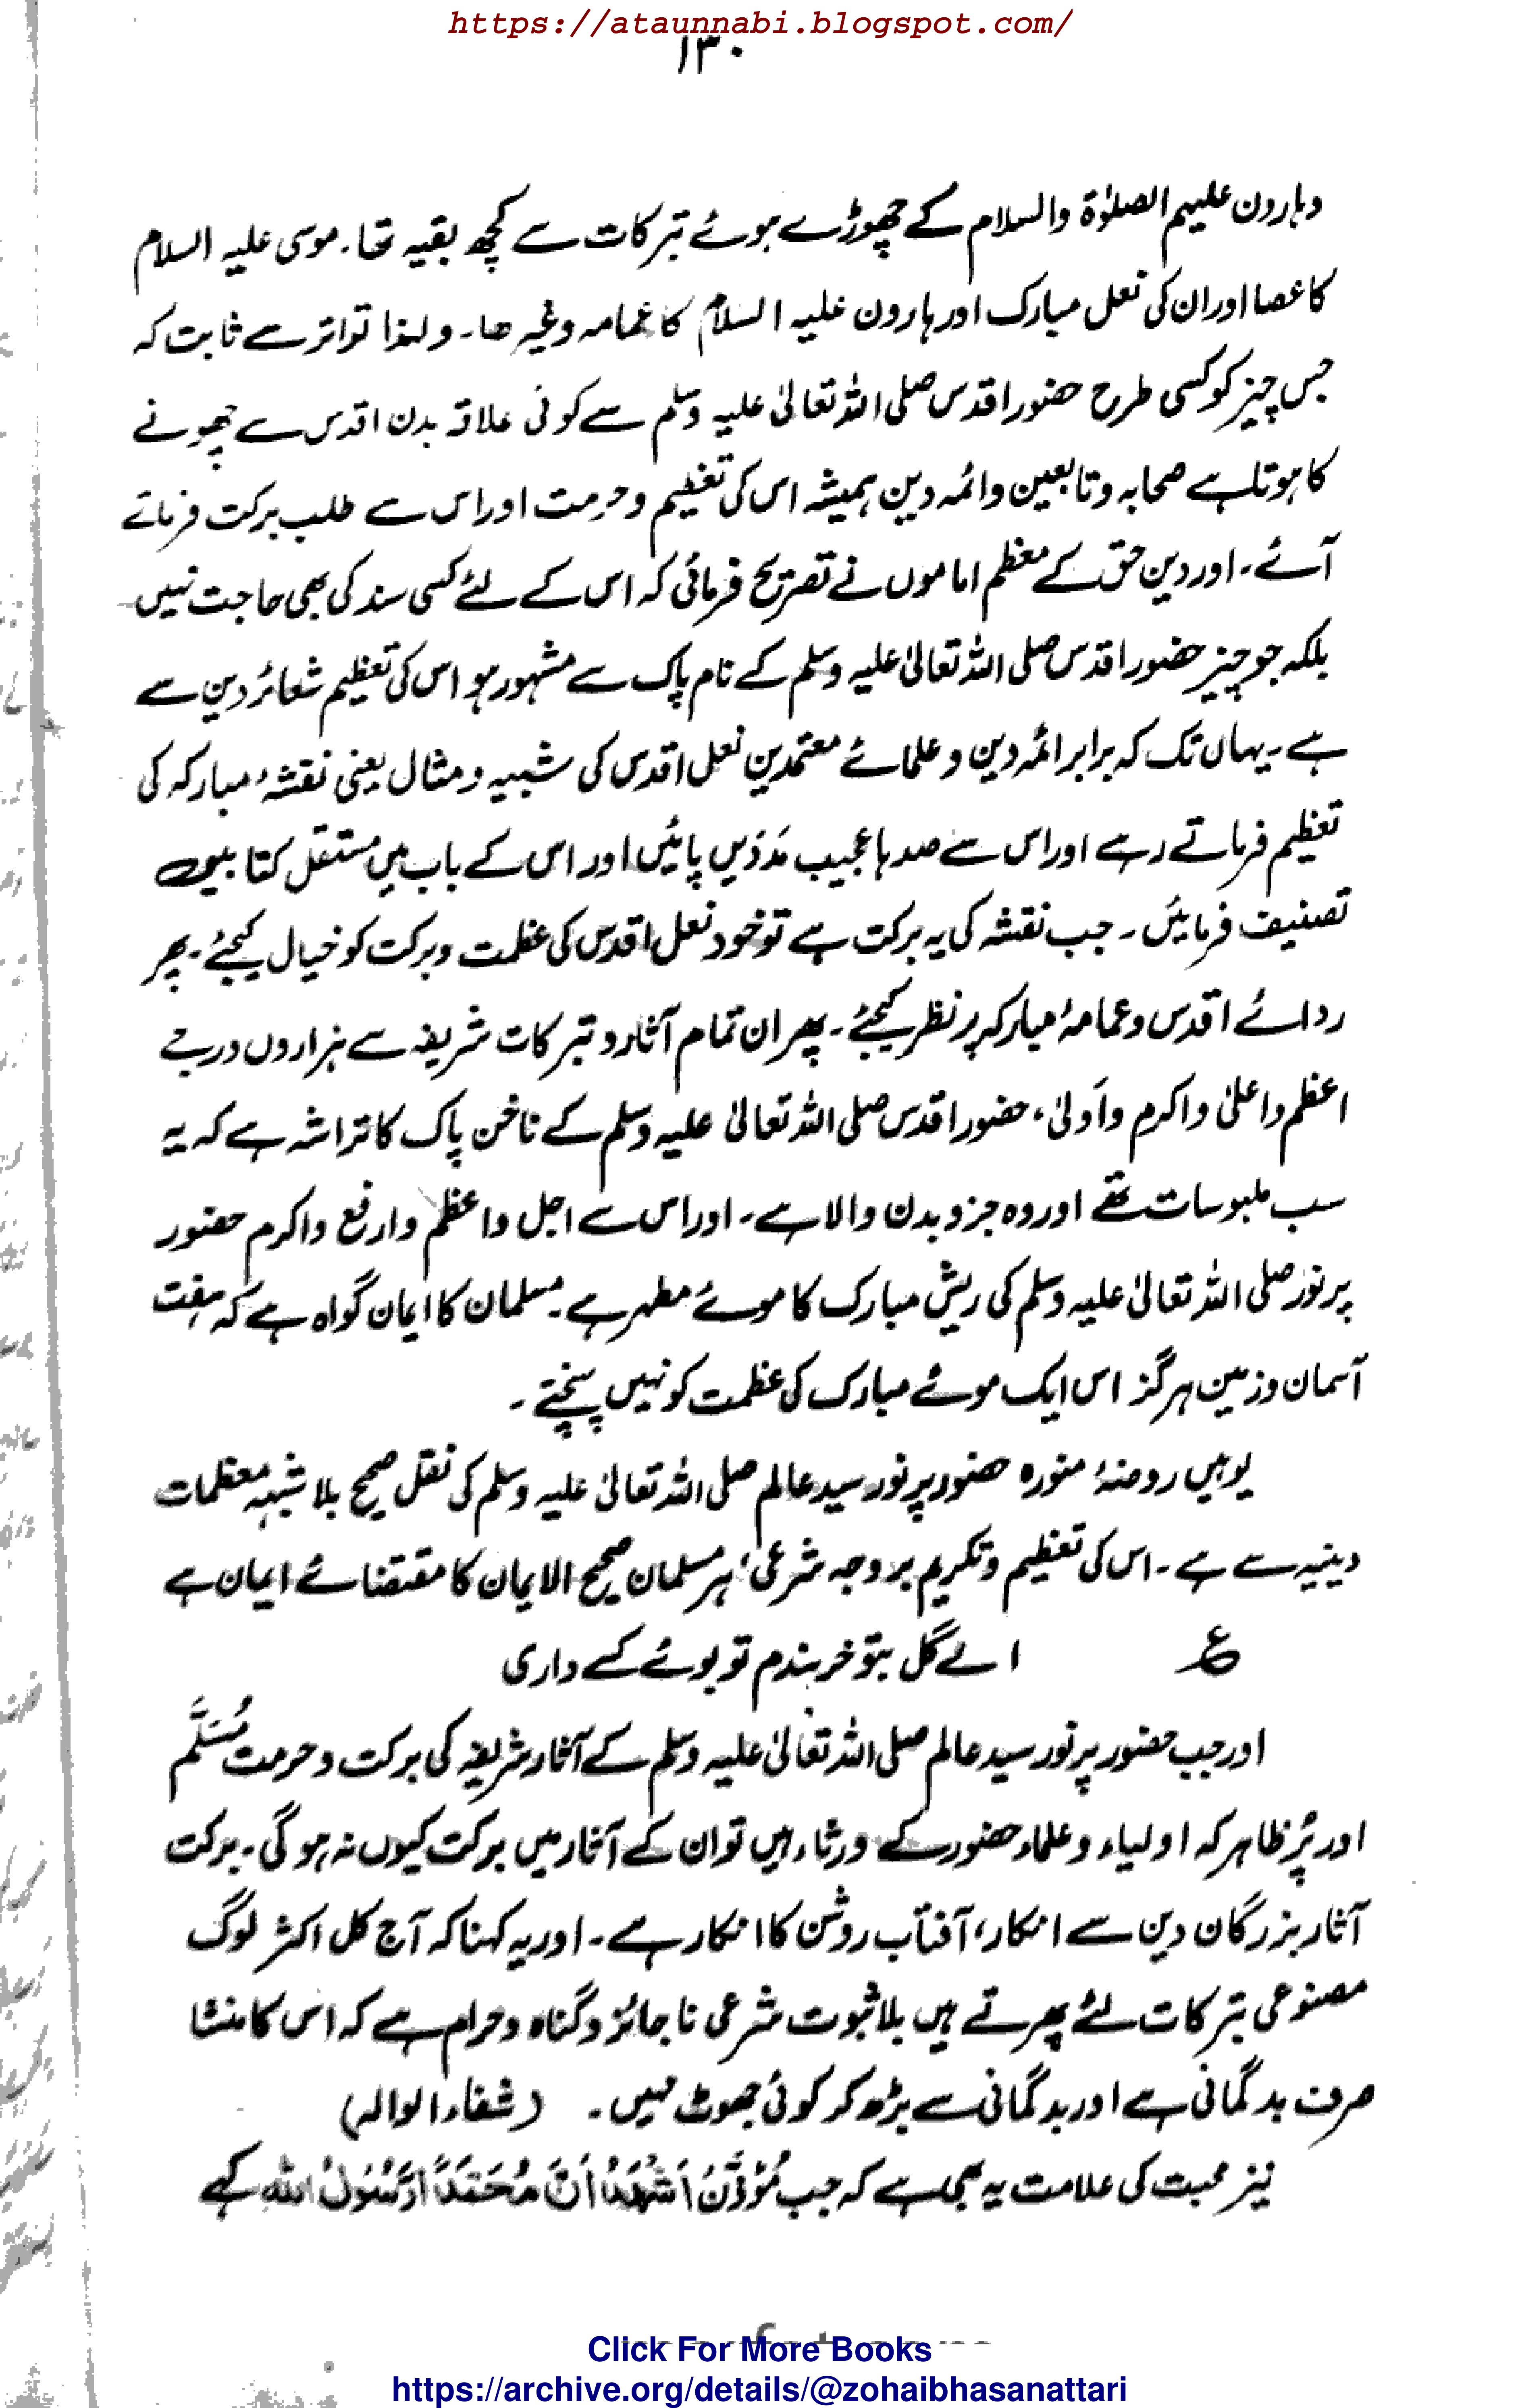 https://ataunnabi.blogspot.com/
۱۳۰
وہارون علیہم الصلوٰۃ والسلام کے چھوڑے ہوئے تبرکات سے کچھ بقیہ تھا۔ موسی علیہ السلام
کا عصا اور ان کی نعل مبارک اور ہارون علیہ السلام کا عمامہ وغیرھا۔ ولہٰذا تواتر سے ثابت کہ
جس چیز کو کسی طرح حضور اقدس صلی اللہ تعالیٰ علیہ وسلم سے کوئی علاقہ بدن اقدس سے چھونے
کا ہوتا ہے صحابہ و تابعین وائمہ دین ہمیشہ اس کی تعظیم و حرمت اور اس سے طلب برکت فرماتے
آئے۔ اور دین حق کے معظم اماموں نے تصریح فرمائی کہ اس کے لئے کسی سند کی بھی حاجت نہیں
بلکہ جو چیز حضور اقدس صلی اللہ تعالیٰ علیہ وسلم کے نام پاک سے مشہور ہو اس کی تعظیم شعائر دین سے
ہے۔ یہاں تک کہ برابر ائمہ دین و علمائے معتمدین نعل اقدس کی شبیہ و مثال یعنی نقشۂ مبارکہ کی
تعظیم فرماتے رہے اور اس سے صدہا عجیب مَدَدَیں پائیں اور اس کے باب میں مستقل کتابیں
تصنیف فرمائیں۔ جب نقشہ کی یہ برکت ہے تو خود نعل اقدس کی عظمت و برکت کو خیال کیجئے۔ پھر
ردائے اقدس و عمامۂ مبارکہ پر نظر کیجئے۔ پھر ان تمام آثار و تبرکات شریفہ سے ہزاروں درجے
اعظم و اعلیٰ و اکرم و اَولیٰ، حضور اقدس صلی اللہ تعالیٰ علیہ وسلم کے ناخن پاک کا تراشہ ہے کہ یہ
سب ملبوسات تھے اور وہ جزو بدن والا ہے۔ اور اس سے اجل و اعظم و ارفع و اکرم حضور
پر نور صلی اللہ تعالیٰ علیہ وسلم کی ریش مبارک کا موئے مطہر ہے۔ مسلمان کا ایمان گواہ ہے کہ ہفت
آسمان و زمین ہرگز اس ایک موئے مبارک کی عظمت کو نہیں پہنچتے۔
یوہیں روضۂ منورہ حضور پر نور سید عالم صلی اللہ تعالیٰ علیہ وسلم کی نقل صحیح بلا شبہہ معظمات
دینیہ سے ہے۔ اس کی تعظیم و تکریم بر وجہ شرعی، ہر مسلمان صحیح الایمان کا مقتضائے ایمان ہے
ع اے گل بتو خرسندم تو بوئے کسے داری
اور جب حضور پر نور سید عالم صلی اللہ تعالیٰ علیہ وسلم کے آثار شریفہ کی برکت و حرمت مُسَلَّم
اور پُر ظاہر کہ اولیاء و علماء حضور کے ورثاء ہیں تو ان کے آثار میں برکت کیوں نہ ہوگی۔ برکت
آثار بزرگان دین سے انکار، آفتاب روشن کا انکار ہے۔ اور یہ کہنا کہ آج کل اکثر لوگ
مصنوعی تبرکات لئے پھرتے ہیں بلا ثبوت شرعی ناجائز و گناہ و حرام ہے کہ اس کا منشا
صرف بدگمانی ہے اور بدگمانی سے بڑھ کر کوئی جھوٹ نہیں۔ (شفاء الوالہ)
نیز محبت کی علامت یہ بھی ہے کہ جب مُؤَذِّن اَشْهَدُ اَنَّ مُحَمَّدًا رَّسُوْلُ اللہِ کہے
Click For More Books
https://archive.org/details/@zohaibhasanattari